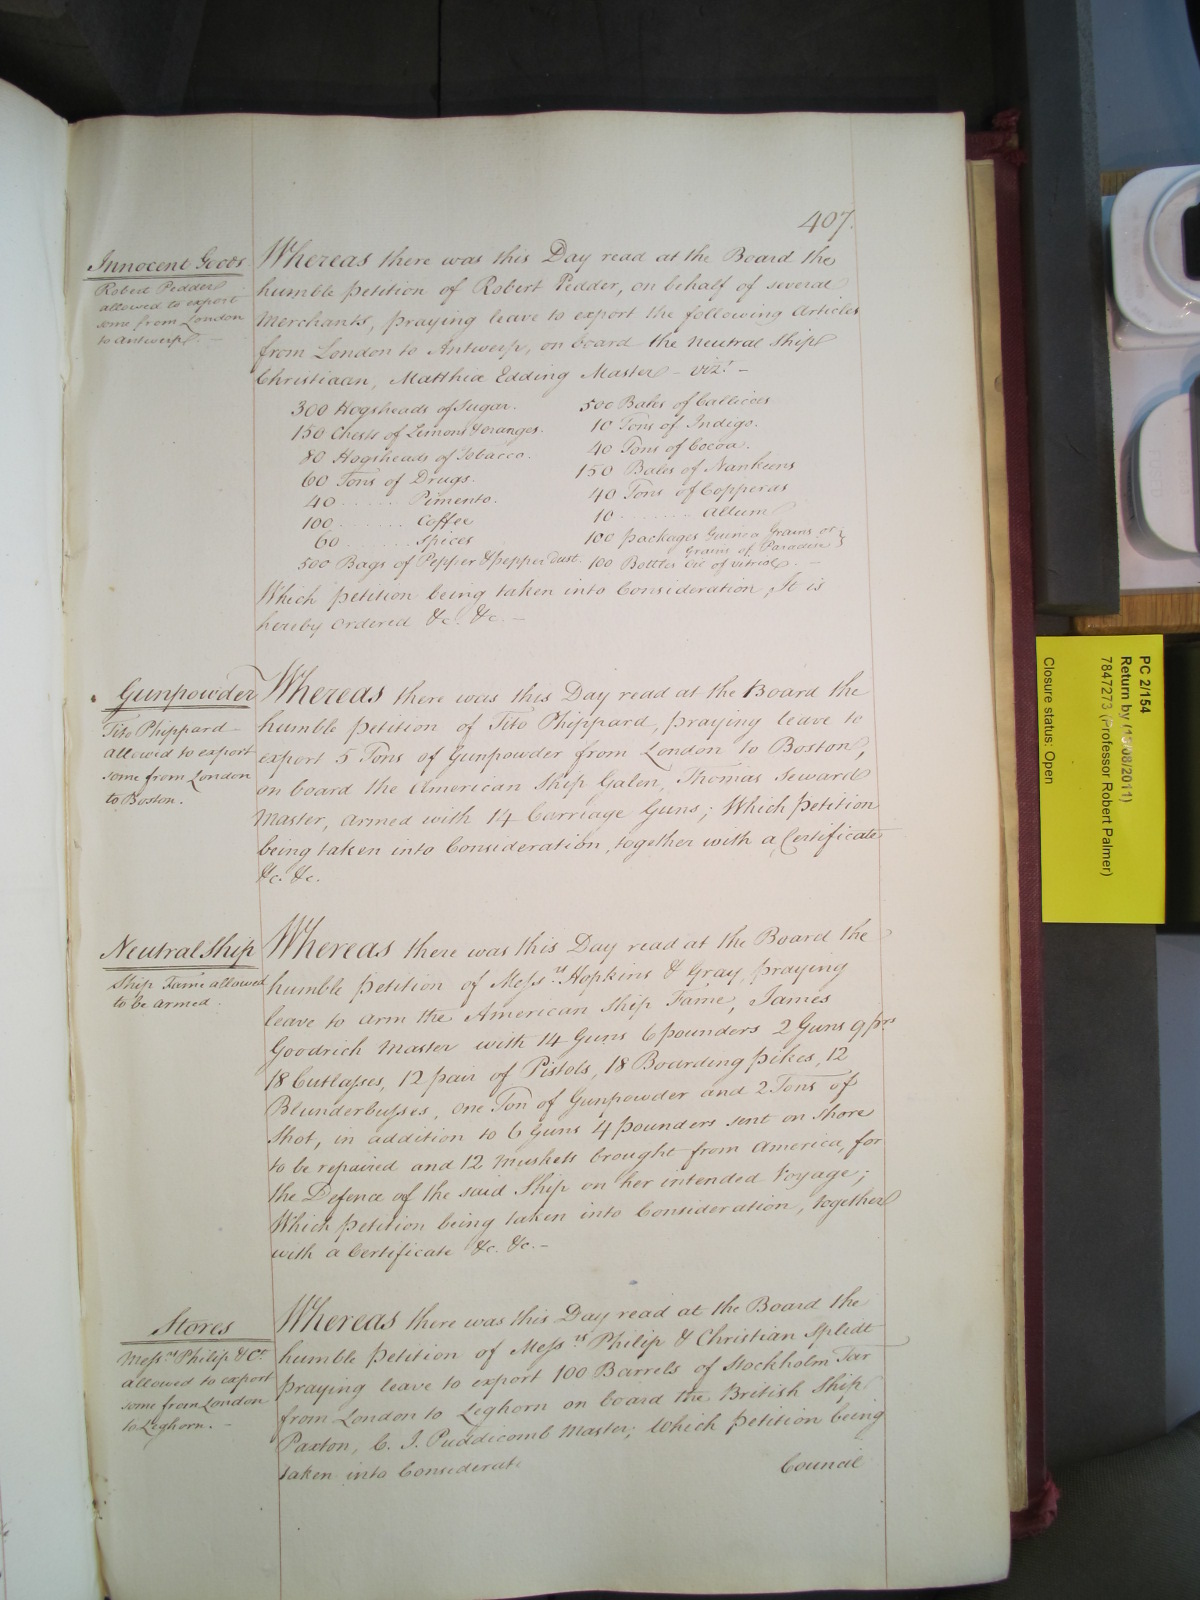 407.
Innocent Goods
Robert Pedder
allowed to export
some from London
to Antwerp. –
Whereas there was this Day read at the Board the
humble petition of Robert Pedder, on behalf of several
Merchants, praying leave to export the following articles
from London to Antwerp, on board the neutral Ship
Christiaan, Matthia Edding Master – vizt. –
300 Hogsheads of Sugar.
150 Chests of Lemons & oranges.
80 Hogsheads of Tobacco.
60 Tons of Drugs.
40 ...... Pimento.
100 ....... Coffee
60 ....... Spices
500 Bags of Pepper & pepper dust.
500 Bales of Callicoes
10 Tons of Indigo.
40 Tons of Cocoa.
150 Bales of Nankeens
40 Tons of Copperas
10 ....... Allum
100 packages Guinea Grains or }
Grains of Paradise }
100 Bottles Oil of vitriol. –
Which petition being taken into Consideration, It is
hereby ordered &c. &c. –
Gunpowder
Tito Phippard
allowed to export
some from London
to Boston.
Whereas there was this Day read at the Board the
humble petition of Tito Phippard, praying leave to
export 5 Tons of Gunpowder from London to Boston,
on board the American Ship Galen, Thomas Seward
Master, armed with 14 Carriage Guns; Which petition
being taken into Consideration, together with a Certificate
&c. &c.
Neutral Ship
Ship Fame allowed
to be armed.
Whereas there was this Day read at the Board the
humble petition of Messrs. Hopkins & Gray, praying
leave to arm the American Ship Fame, James
Goodrich Master with 14 Guns 6 pounders 2 Guns 9 prs
18 Cutlasses, 12 pair of Pistols, 18 Boarding pikes, 12
Blunderbusses, one Ton of Gunpowder and 2 Tons of
Shot, in addition to 6 Guns 4 pounders sent on shore
to be repaired and 12 muskets brought from America, for
the Defence of the said Ship on her intended Voyage;
Which petition being taken into Consideration, together
with a Certificate &c. &c. –
Stores
Messrs. Philip & Co.
allowed to export
some from London
to Leghorn. –
Whereas there was this Day read at the Board the
humble petition of Messrs. Philip & Christian Splidt
praying leave to export 100 Barrels of Stockholm Tar
from London to Leghorn on board the British Ship
Paxton, C. I. Puddicomb Master; Which petition being
taken into Considerate
Council
PC 2/154
Return by (15/08/2011)
7847273 (Professor Robert Palmer)
Closure status: Open